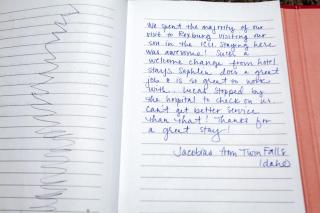 We spent the majority of our
visit to Rexburg visiting our
son in the ICU. Staying here
was awesome! Such a
welcome change from hotel
stays. Sephlen does a great
job & is so great to work
with. Lucas stopped by
the hospital to check on us.
Can't get better service
than that! Thanks for
a great stay!
Jacobias from Twin Falls
Idaho